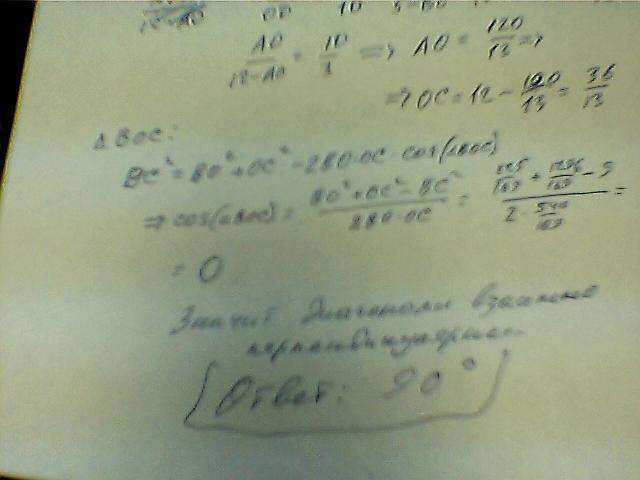 AO/(12-AO) = 10/3 => AO = 120/13 =>
=> OC = 12 - 120/13 = 36/13
Δ BOC:
BC² = BO² + OC² - 2BO·OC·cos(∠BOC)
=> cos(∠BOC) = (BO² + OC² - BC²)/(2BO·OC) = (225/169 + 1296/169 - 9)/(2·540/169) =
= 0
Значит диагонали взаимно
перпендикулярны.
Ответ: 90°